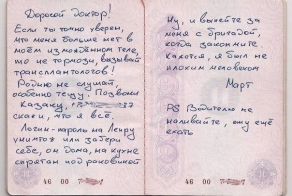 Дорогой Доктор!
Если ты точно уверен,
что меня больше нет в
моём измождённом теле,
то не тормози, вызывай
трансплантологов!
Родню не слушай,
особенно тёзу. Позвони
Казаку,
скажи, что я всё.
Логин-пароль на Лепру
уничтожь или забери
себе, он дома, на кухне
спрятан под раковиной
46 00
Ну, и выпейте за
меня с бригадой,
когда закончите.
Кажется, я был не
плохим человеком
Март
PS Водителю не
наливайте, ему ещё
ехать
46 00